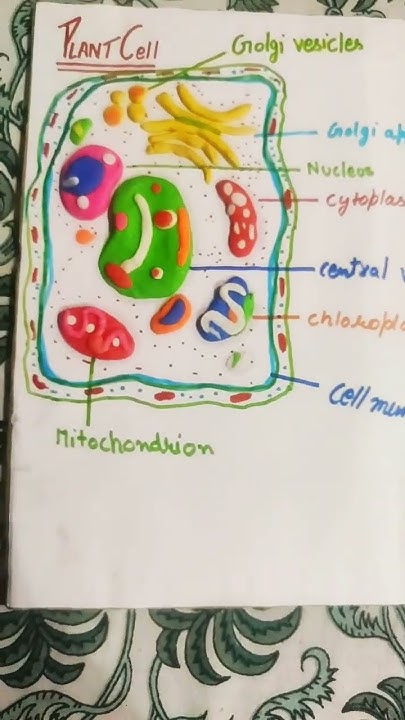 PLANT Cell
Golgi vesicles
Golgi ap
Nucleos
Cytoplas
Central v
Chloropla
Cell mem
Mitochondrion